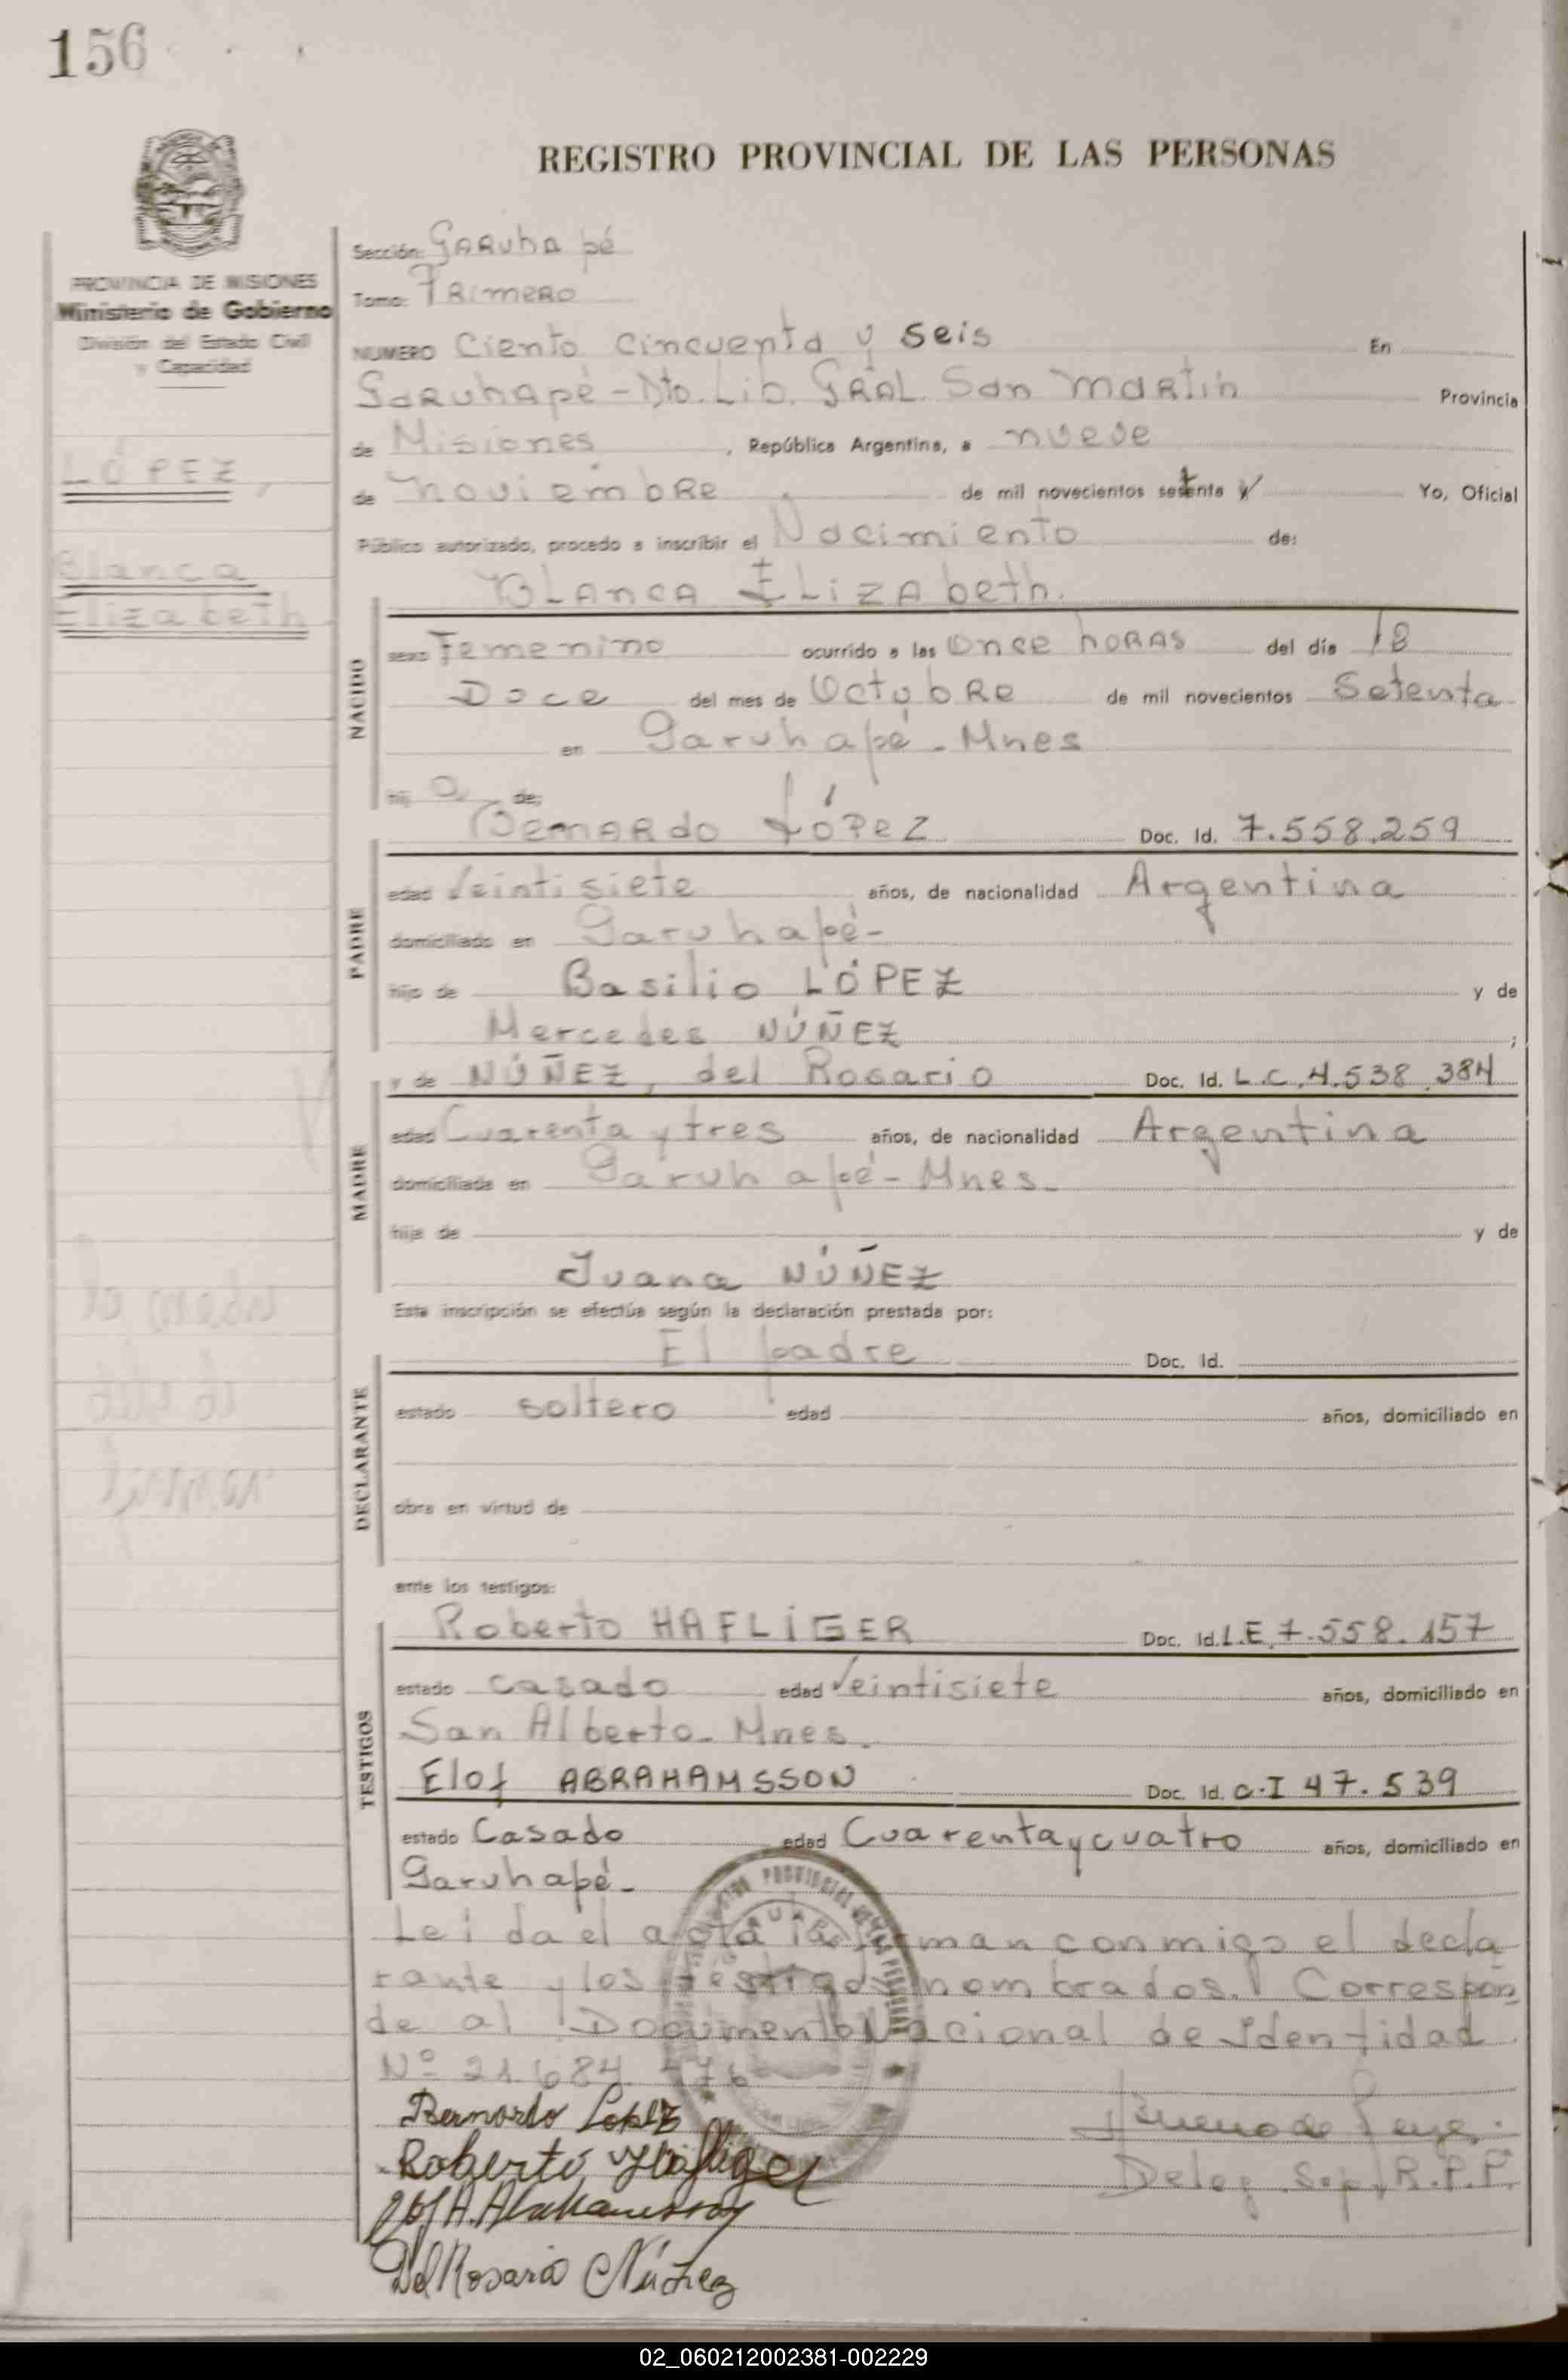 156
REGISTRO PROVINCIAL DE LAS PERSONAS
PROVINCIA DE MISIONES
Ministerio de Gobierno
División del Estado Civil
y Capacidad
LÓPEZ,
Blanca
Elizabeth
Sección: GARUhA pé
Tomo: PRimeRO
NUMERO Ciento cincuenta y seis En
GaRuhApé - Dto. Lib. GRAL. San Martín Provincia
de Misiones, República Argentina, a nueve
de noviembRe de mil novecientos setenta y Yo, Oficial
Público autorizado, procedo a inscribir el Nacimiento de:
BLAncA ELizAbeth.
NACIDO
sexo Femenino ocurrido a las Once hORAS del día
Doce del mes de OctubRe de mil novecientos Setenta
en Garuhapé - Mnes
hij a de:
BeRnARdo LÓPeZ Doc. Id. 7.558.259
PADRE
edad Veintisiete años, de nacionalidad Argentina
domiciliado en Garuhapé-
hijo de Basilio LÓPEZ y de
Mercedes NÚÑEZ ;
y de NÚÑEZ, del Rosario Doc. Id. L.C. 4.538.384
MADRE
edad Cuarenta y tres años, de nacionalidad Argentina
domiciliada en Garuhapé - Mnes.
hija de y de
Juana NÚÑEZ
Esta inscripción se efectúa según la declaración prestada por:
El padre Doc. Id.
DECLARANTE
estado soltero edad años, domiciliado en
obra en virtud de
ante los testigos:
Roberto HAFLIGER Doc. Id. L.E. 7.558.157
TESTIGOS
estado casado edad Veintisiete años, domiciliado en
San Alberto - Mnes.
Elof ABRAHAMSSON Doc. Id. C.I 47.539
estado Casado edad Cuarenta y cuatro años, domiciliado en
Garuhapé-
Leida el acta la firman conmigo el decla
rante y los testigos nombrados. Correspon
de al Documento Nacional de Identidad
Nº 21.684.
Bernardo Lopez
Roberto Hafliger
Elof A. Abrahamsson
Del Rosario Núñez
Deleg. Sup. R.P.P.
02_060212002381-002229